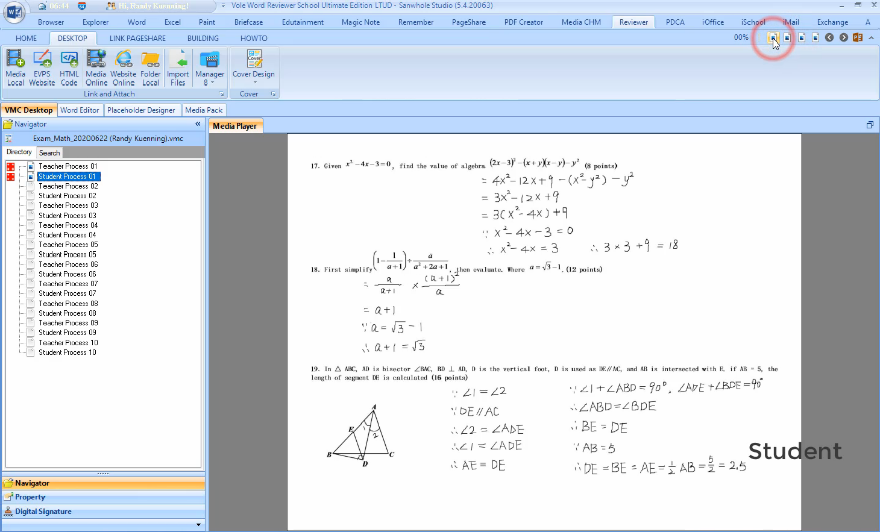 06:44
Hi, Handy Kuenning!
Vole Word Reviewer School Ultimate Edition LTUD - Sanwhole Studio (5.4.20063)
Browser Explorer Word Excel Paint Briefcase Edutainment Magic Note Remember PageShare PDF Creator Media CHM Reviewer PDCA iOffice iSchool iMail Exchange
HOME DESKTOP LINK PAGESHARE BUILDING HOWTO 00%
Media Local EVPS Website HTML Code Media Online Website Online Folder Local Import Files Manager 8 Cover Design
Link and Attach Cover
VMC Desktop Word Editor Placeholder Designer Media Pack
Navigator «
Exam_Math_20200622 (Randy Kuenning).vmc
Directory Search
Teacher Process 01
Student Process 01
Teacher Process 02
Student Process 02
Teacher Process 03
Student Process 03
Teacher Process 04
Student Process 04
Teacher Process 05
Student Process 05
Teacher Process 06
Student Process 06
Teacher Process 07
Student Process 07
Teacher Process 08
Student Process 08
Teacher Process 09
Student Process 09
Teacher Process 10
Student Process 10
Navigator
Property
Digital Signature
Media Player
17. Given x²-4x-3=0, find the value of algebra (2x-3)²-(x+y)(x-y)-y² (8 points)
= 4x²-12x+9-(x²-y²)-y²
= 3x²-12x+9
= 3(x²-4x)+9
∵ x²-4x-3=0
∴ x²-4x=3 ∴ 3×3+9=18
18. First simplify (1-1/(a+1))÷a/(a²+2a+1), then evaluate. Where a=√3-1, (12 points)
= a/(a+1) × (a+1)²/a
= a+1
∵ a=√3-1
∴ a+1=√3
19. In △ ABC, AD is bisector ∠BAC, BD ⊥ AD, D is the vertical foot, D is used as DE∥AC, and AB is intersected with E, if AB = 5, the
length of segment DE is calculated (16 points)
∵ ∠1=∠2
∵ DE∥AC
∴ ∠2=∠ADE
∴ ∠1=∠ADE
∴ AE=DE
∵ ∠1+∠ABD=90°, ∠ADE+∠BDE=90°
∴ ∠ABD=∠BDE
∴ BE=DE
∵ AB=5
∴ DE=BE=AE=1/2 AB=5/2=2.5
A
E 1 2
B D C
Student